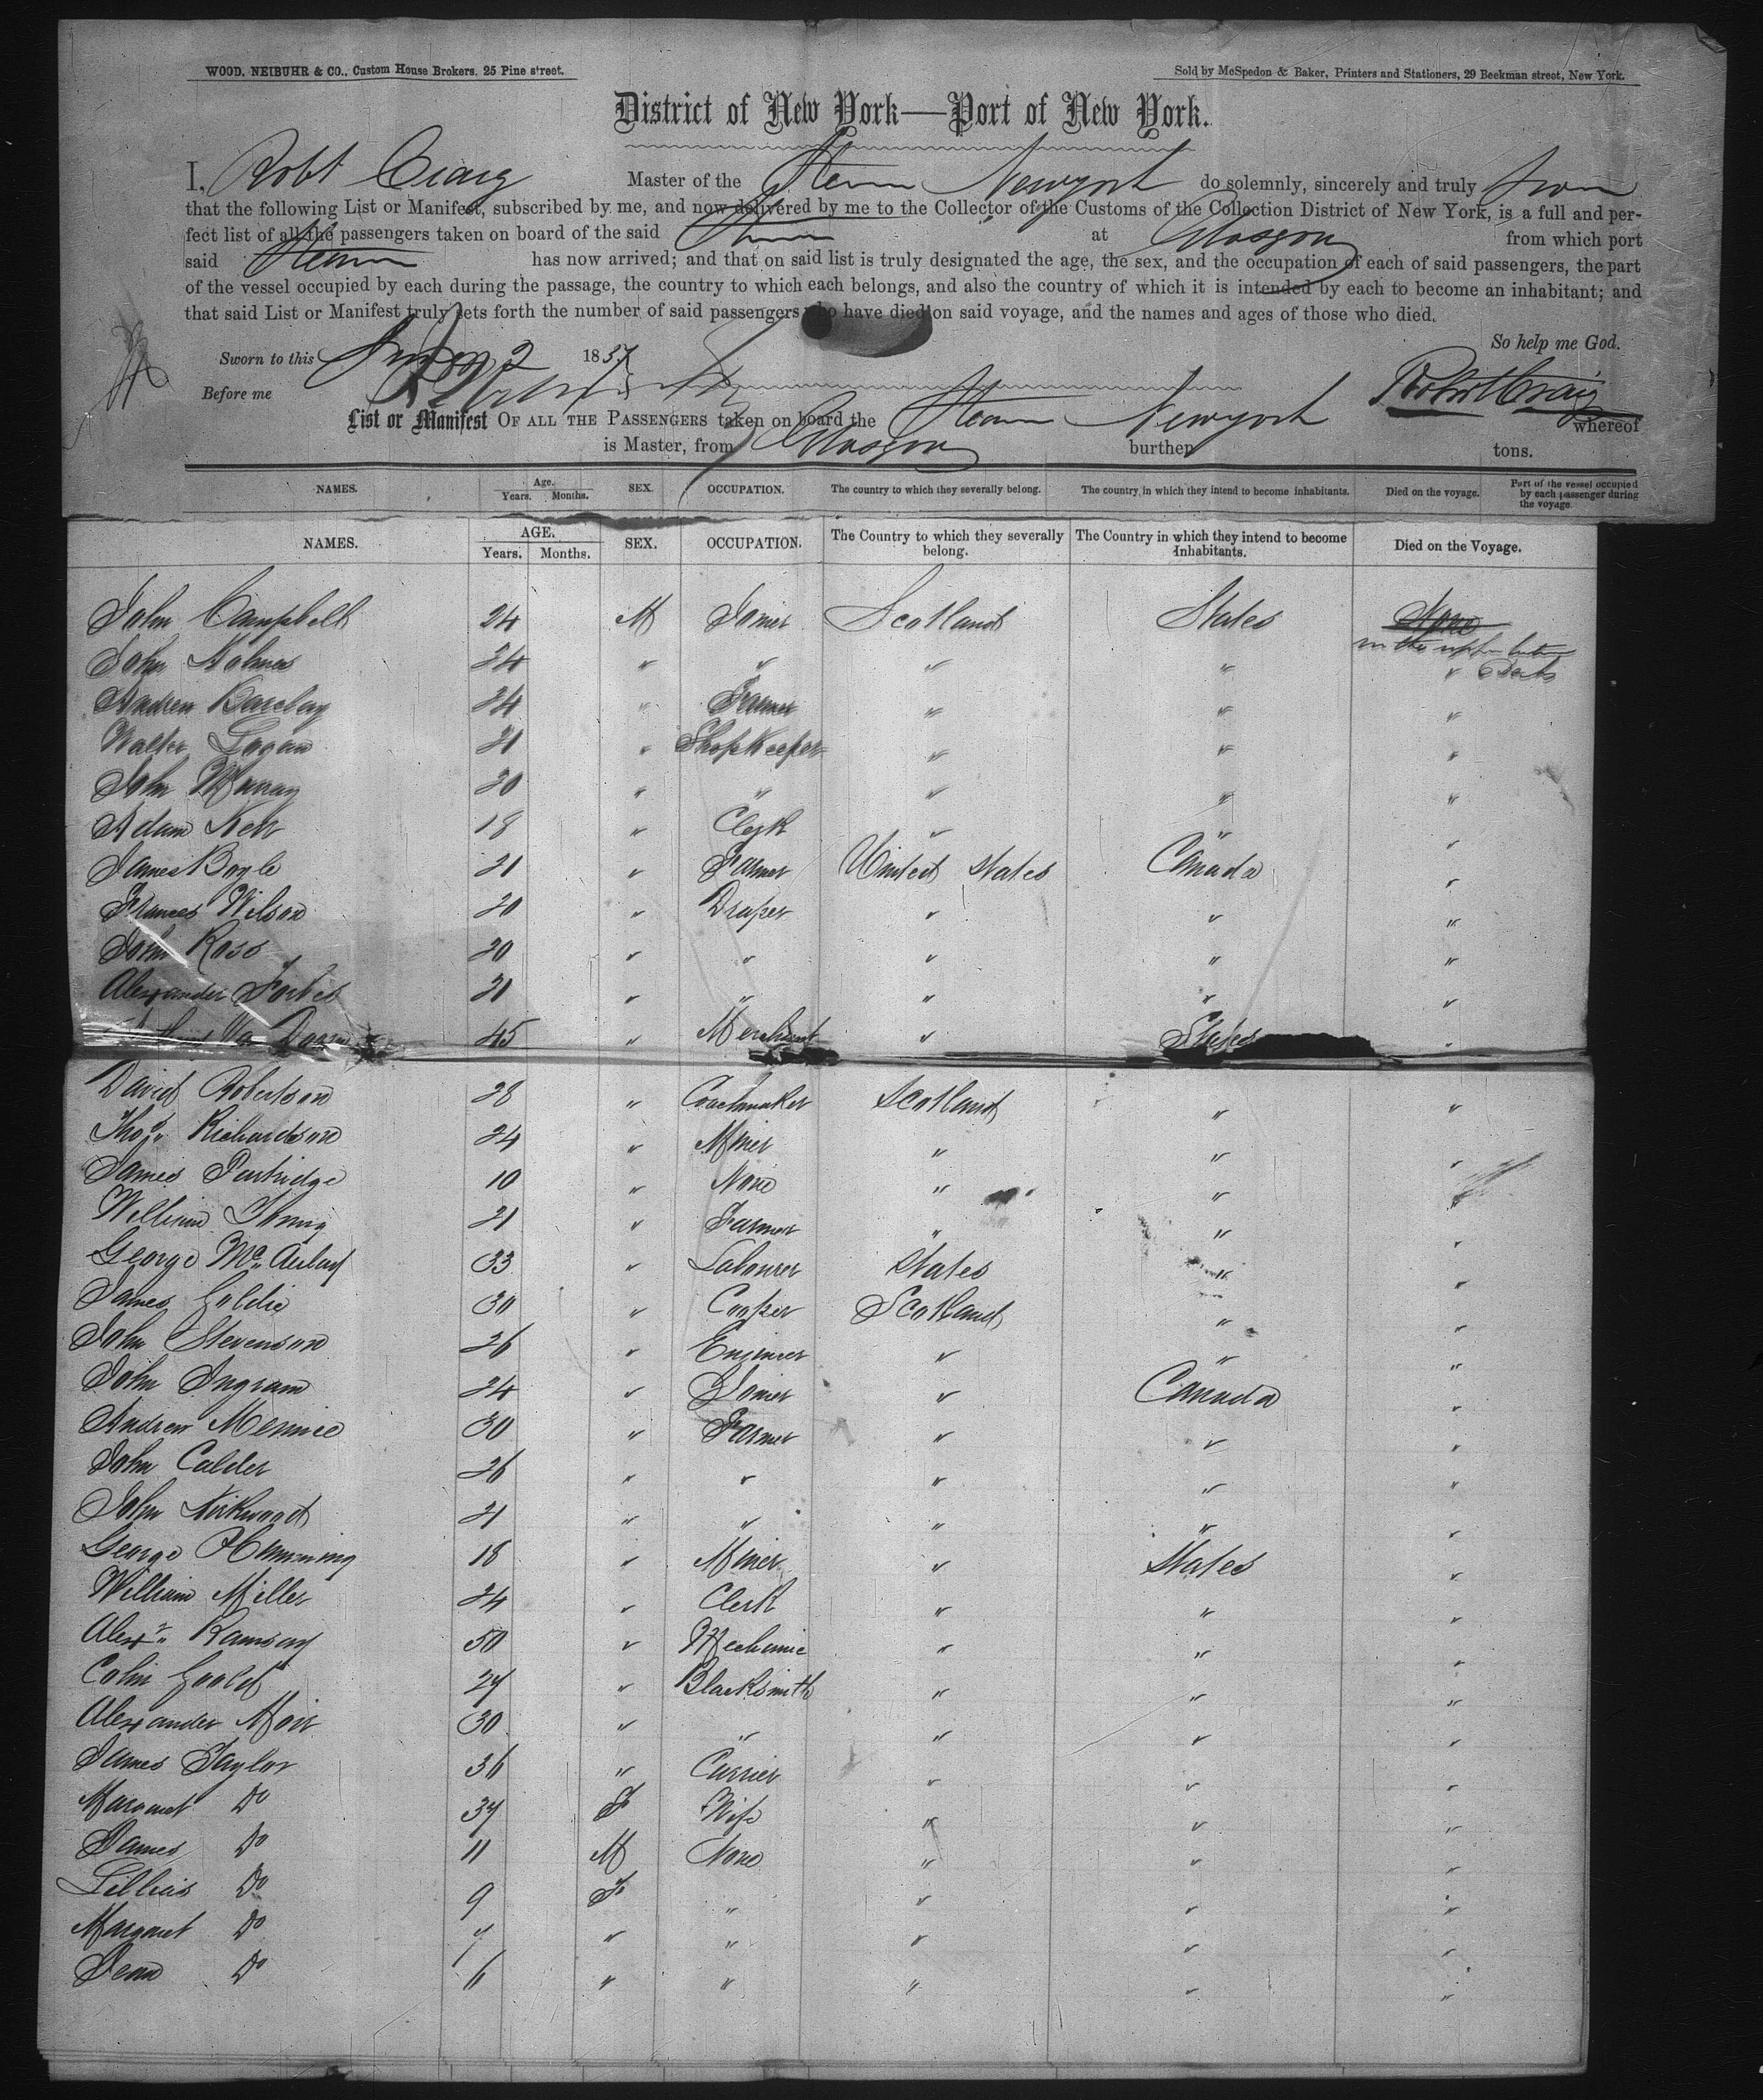 WOOD, NEIBUHR & CO., Custom House Brokers, 25 Pine street.
Sold by McSpedon & Baker, Printers and Stationers, 29 Beekman street, New York.
District of New York—Port of New York.
I, Robt Craig Master of the Steamer Newyork do solemnly, sincerely and truly swear
that the following List or Manifest, subscribed by me, and now delivered by me to the Collector of the Customs of the Collection District of New York, is a full and per-
fect list of all the passengers taken on board of the said Steamer at Glasgow from which port
said Steamer has now arrived; and that on said list is truly designated the age, the sex, and the occupation of each of said passengers, the part
of the vessel occupied by each during the passage, the country to which each belongs, and also the country of which it is intended by each to become an inhabitant; and
that said List or Manifest truly sets forth the number of said passengers who have died on said voyage, and the names and ages of those who died.
So help me God.
Sworn to this 2 1857
Before me
Robert Craig
List or Manifest OF ALL THE PASSENGERS taken on board the Steamer Newyork whereof
is Master, from Glasgow burthen tons.
NAMES. Age. Years. Months. SEX. OCCUPATION. The country to which they severally belong. The country in which they intend to become inhabitants. Died on the voyage. Part of the vessel occupied by each passenger during the voyage
NAMES. AGE. Years. Months. SEX. OCCUPATION. The Country to which they severally belong. The Country in which they intend to become Inhabitants. Died on the Voyage.
John Campbell 24 M Joiner Scotland States None
in the upper between
John Holmes 24 " " " " " Decks
Andrew Barclay 24 " Farmer " " "
Walter Logan 21 " ShopKeeper " " "
John Murray 20 " " " " "
Adam Kerr 18 " Clerk " " "
James Boyle 21 " Farmer United States Canada "
Frances Wilson 20 " Draper " " "
John Ross 20 " " " " "
Alexander Forbes 21 " " " " "
45 " Merchant " States "
David Robertson 28 " Coachmaker Scotland " "
Thos. Richardson 24 " Miner " " "
James Partridge 10 " None " " "
William 21 " Farmer " " "
George 33 " Labourer States " "
James Goldie 30 " Cooper Scotland " "
John Stevenson 26 " Engineer " " "
John Ingram 24 " Joiner " Canada "
Andrew 30 " Farmer " " "
John Calder 26 " " " " "
John Kirkwood 21 " " " " "
George Hemming 18 " Miner " States "
William Miller 24 " Clerk " " "
Alexr. Ramsay 50 " Mechanic " " "
Colin Goold 27 " Blacksmith " " "
Alexander Moir 30 " " " " "
James Taylor 36 " Currier " " "
Margaret Do 37 F Wife " " "
James Do 11 M None " " "
Lillias Do 9 F " " " "
Margaret Do 7 " " " " "
Jean Do 6 " " " " "